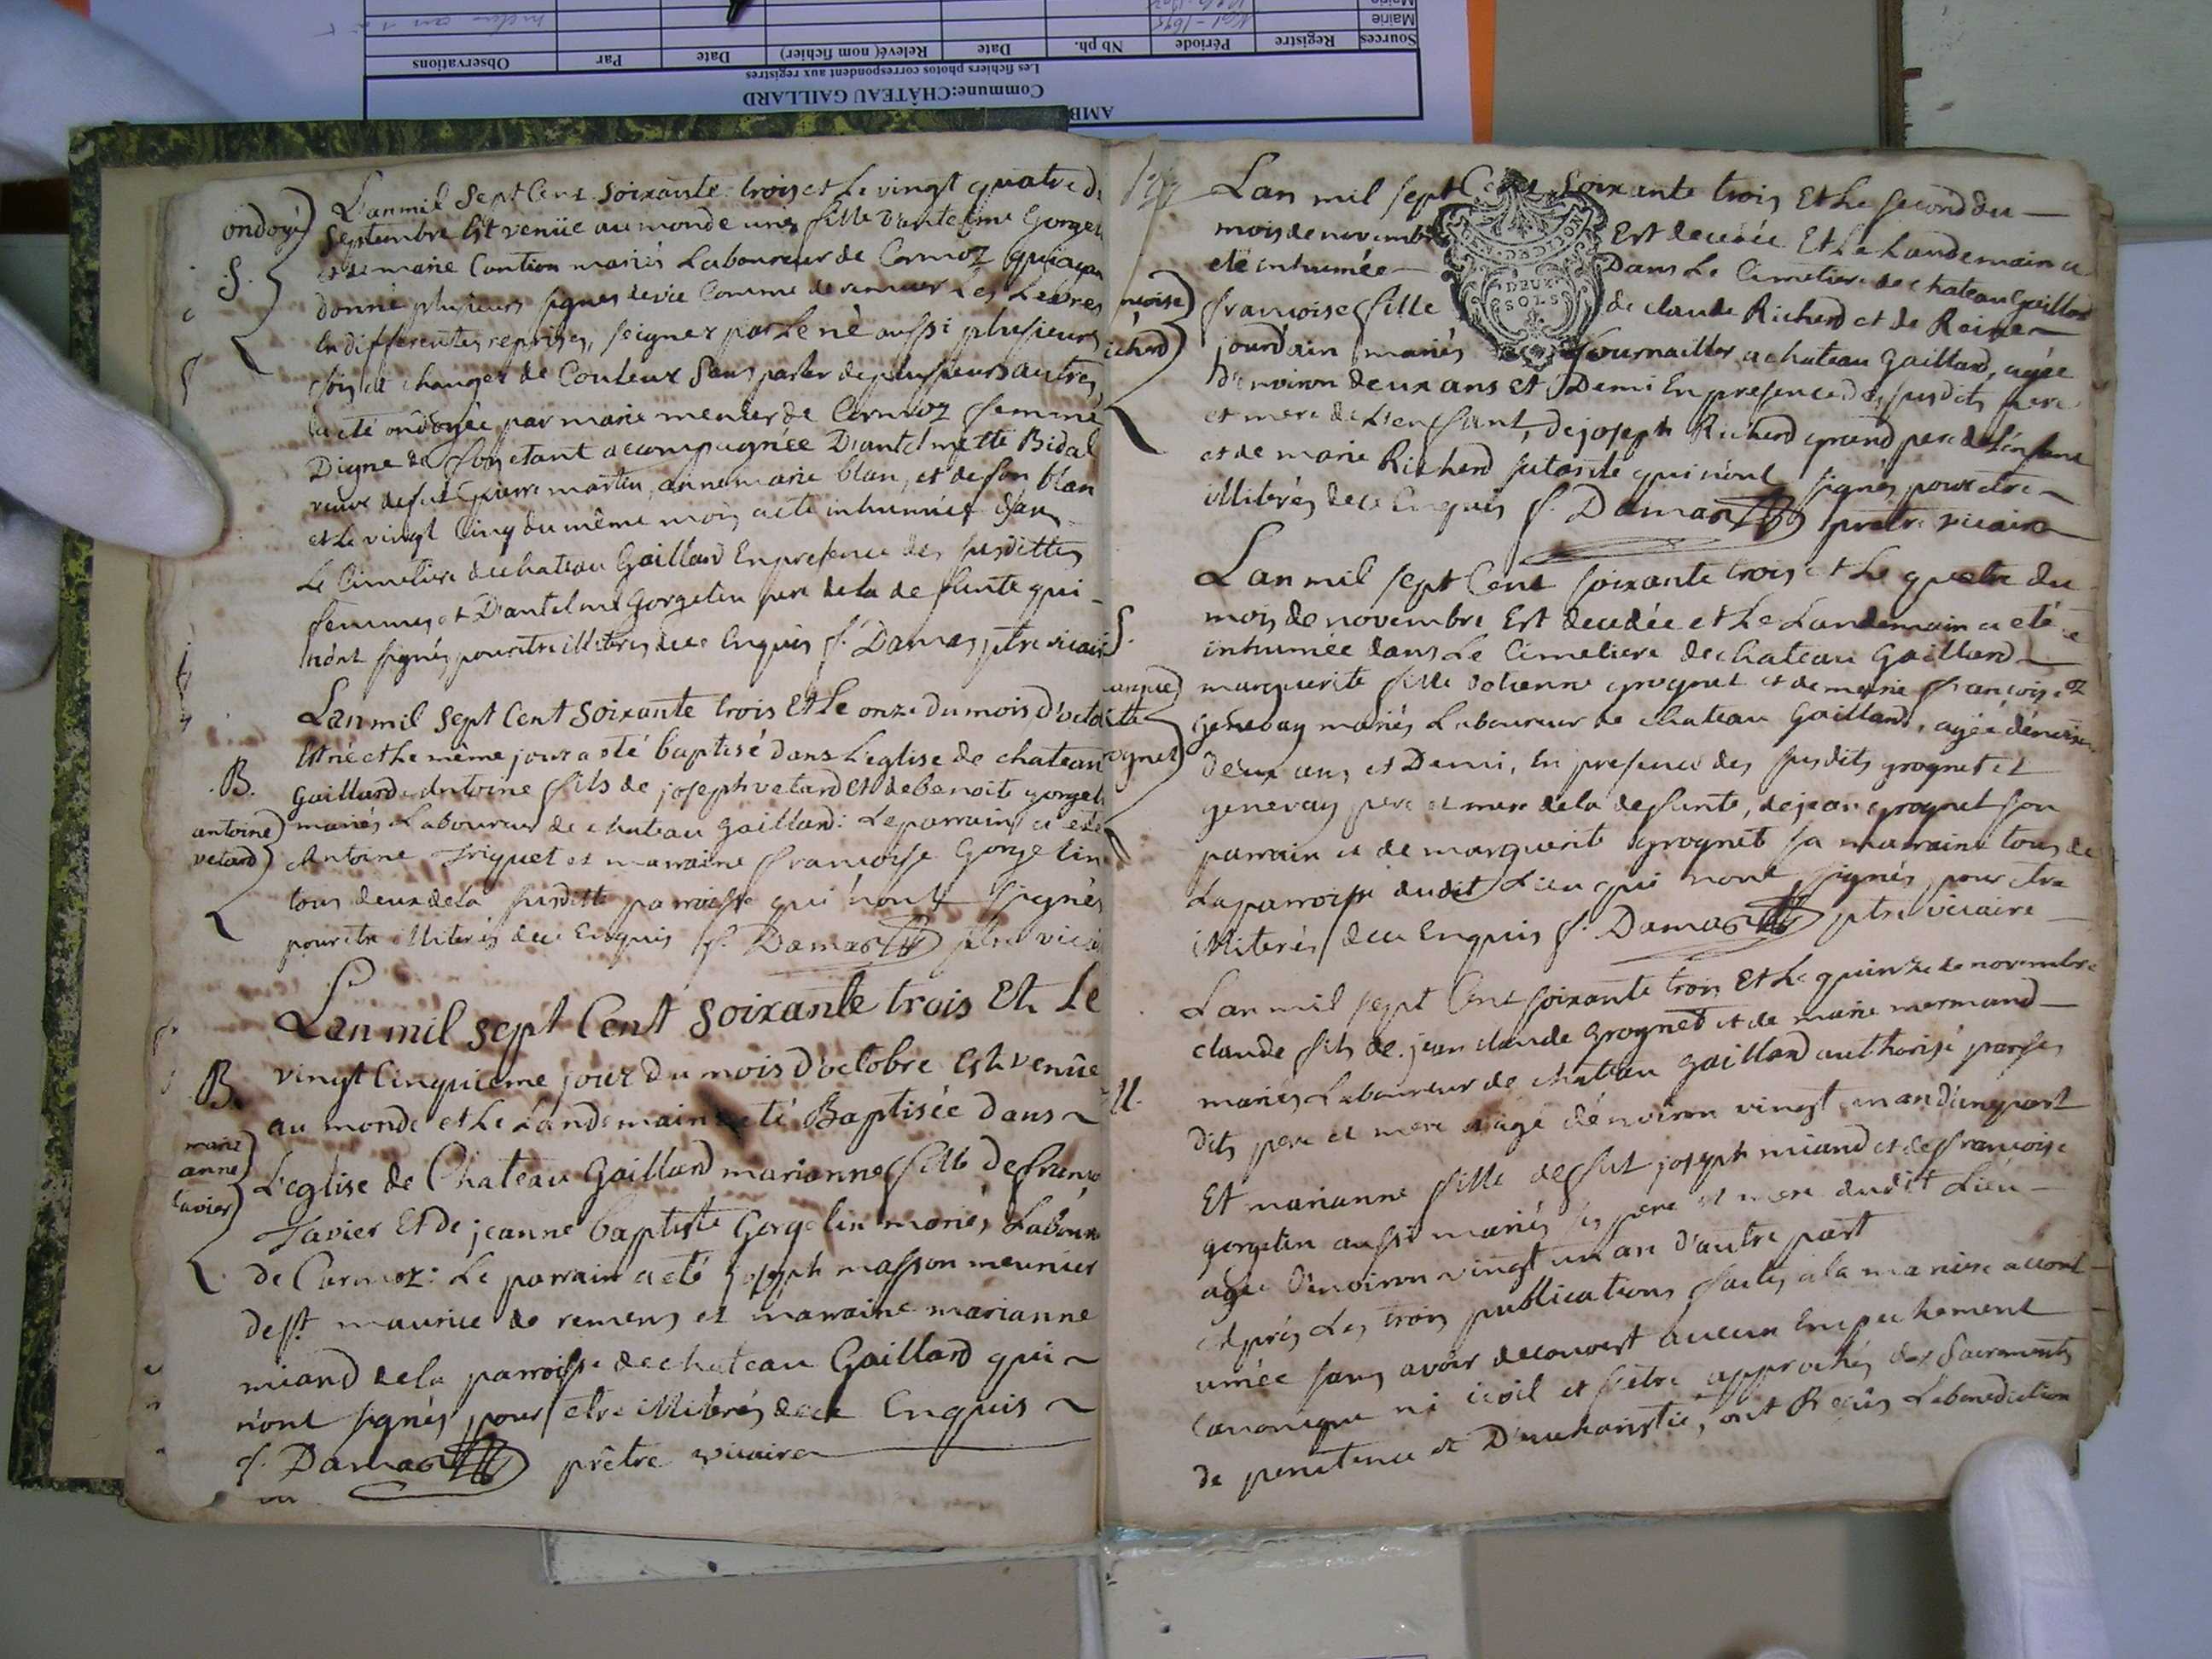 AMB
Commune:CHÂTEAU GAILLARD
Les fichiers photos correspondent aux registres
Sources Registre Période Nb ph. Date Relevé( nom fichier) Date Par Observations
Mairie
Mairie
ondoyé
S.
L'an mil Sept Cent Soixante trois et Le vingt quatre de
Septembre Est venüe au monde une fille d'antelme Gorgel
et de marie Contion mariés Laboureur de Cormoz qui ayan
donné plusieurs signes de vie Comme de remuer Les Levres
En differentes reprises, seigner par Le né aussi plusieurs
fois et changer de Couleur Sans parler de plusieurs autres
a eté ondoyée par marie menier de Cormoz femme
Digne de foy etant accompagnée D'antelmette Bidal
veuve de feu pierre martin, anne marie blan, et de son blan
et Le vingt Cinq du même mois a eté inhumée dan
Le Cimetiere de chateau Gaillard En presence des susdittes
femmes et D'antelme Gorgelin pere de la defunte qui
n'ont signés pour etre illiterés de ce Enquis f. Damas ptre vicair
B.
antoine
vetard
Lan mil Sept Cent Soixante trois Et Le onze du mois d'octo
Est né et Le même jour a eté baptisé dans L'eglise de chateau
Gaillard Antoine fils de joseph vetard Et de Benoite gorgel
mariés Laboureur de chateau gaillard: Le parrain a eté
Antoine Triquet et marraine francoise Gorgelin
tous deux de la susditte parroisse qui n'ont signés
pour etre illiterés de ce Enquis f. Damas ptre vicair
B.
marie
anne
tavier
Lan mil sept Cent Soixante trois Et Le
vingt Cinquieme jour Du mois d'octobre Est venüe
au monde et Le Landemain a eté Baptisée dans
L'eglise de Chateau Gaillard marianne fille de franco
Tavier Et de jeanne baptiste Gorgelin mariés Labour
de Cormoz: Le parrain a eté joseph masson meunier
de st maurice de remens et marraine marianne
miand de la parroisse de chateau Gaillard qui
n'ont signés pour etre illiterés de ce Enquis
f. Damas prêtre vicaire
Lan mil sept Cent Soixante trois Et Le second du
mois de novembre Est decedée Et Le Landemain a
eté inhumée Dans Le Cimetiere de chateau Gaillard
francoise fille de claude Richerd et de Reine
jourdain mariés fournailler a chateau Gaillard, agée
D'environ deux ans et Demi En presence des susdits pere
et mere de L'enfant, de joseph Richerd grand pere de L'enfant
et de marie Richerd sa tante qui n'ont signés pour etre
illiterés de ce Enquis f. Damas prêtre vicaire
DEUX
SOLS
ncoise
icherd
S.
Lan mil sept Cent soixante trois et Le quatre du
mois de novembre Est decedée et Le Landemain a eté
inhumée dans Le Cimetiere de chateau Gaillard
marguerite fille d'etienne grognet et de marie francoise
genevay mariés Laboureur de chateau Gaillard, agée d'environ
deux ans et Demi, En presence des susdits grognet et
genevay pere et mere de la defunte, de jean grognet son
parrain et de marguerite grognet sa marraine tous de
La parroisse dudit Lieu qui n'ont signés pour etre
illiterés de ce Enquis f. Damas ptre vicaire
ognet
M.
Lan mil sept Cent soixante trois Et Le quinze de novembre
claude fils de jean claude grognet et de marie mermand
mariés Laboureur de chateau gaillard authorisé par ses
dits pere et mere agé d'environ vingt un an d'une part
Et marianne fille de fut joseph miand et de francoise
gorgelin aussi mariés ses pere et mere dudit Lieu
agée d'environ vingt un an d'autre part
Après Les trois publications faites a la maniere accout
umée sans avoir decouvert aucun Empechement
Canonique ni civil et s'etre approchés des Sacrements
de penitence et D'eucharistie, ont Reçûs La benediction